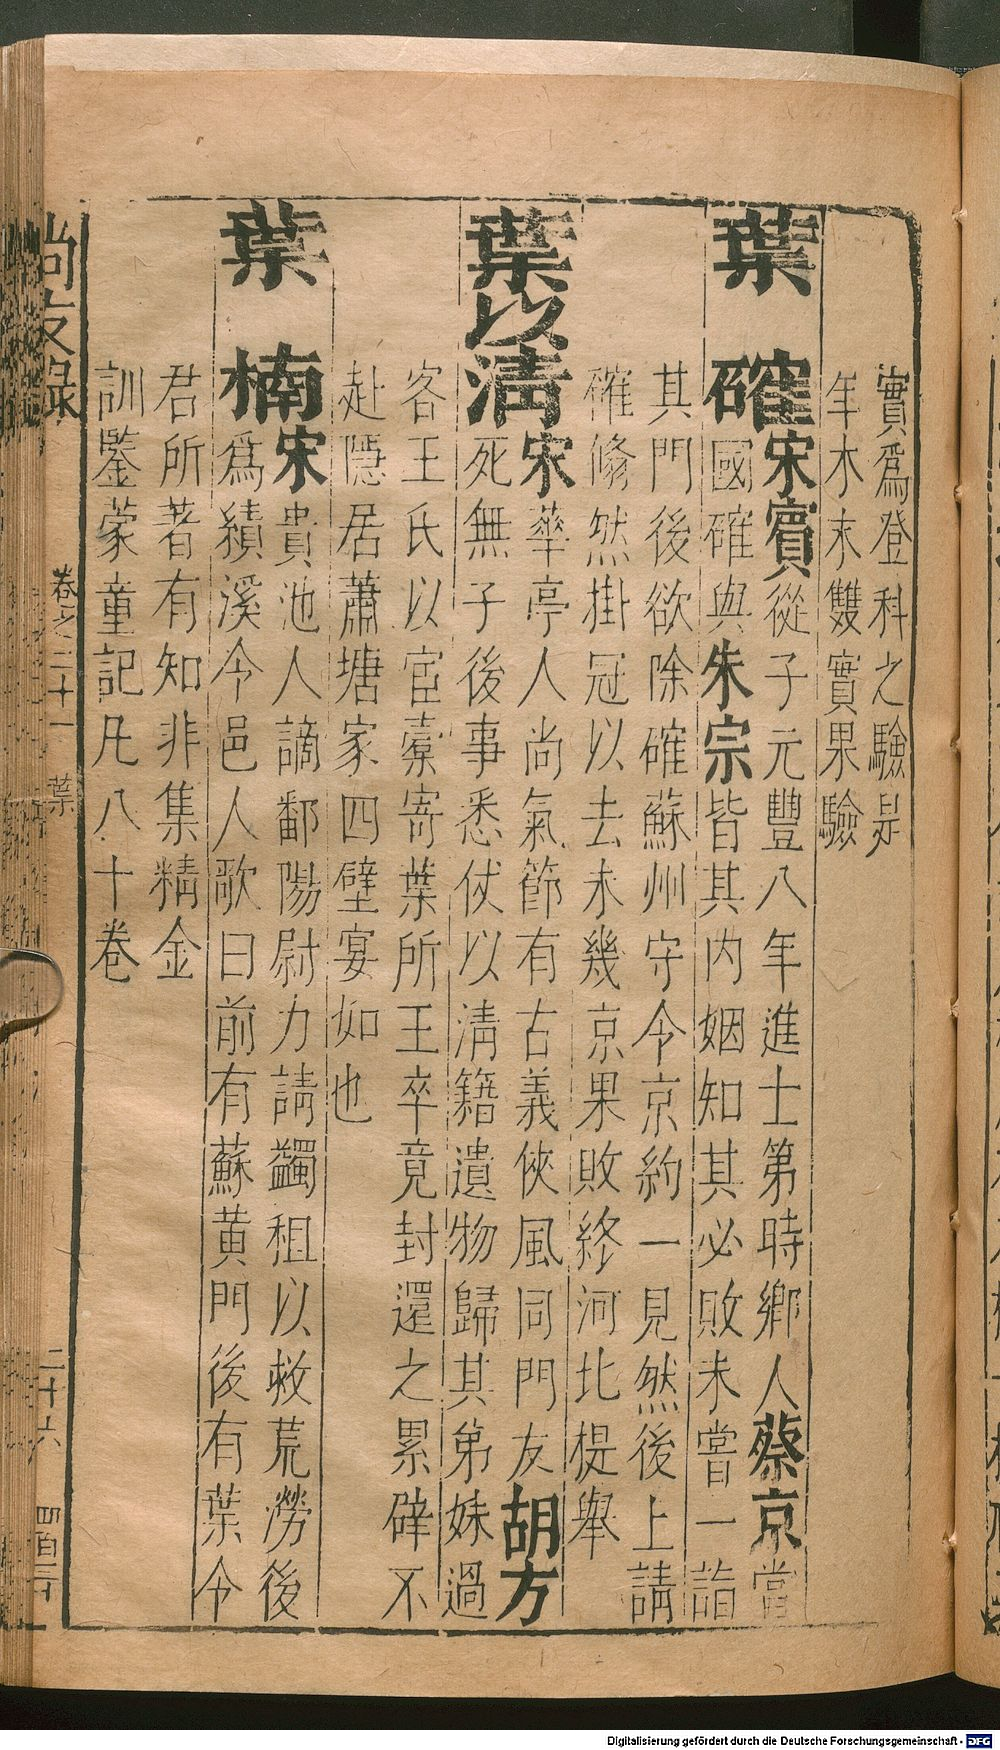 實爲登科之驗是
年木末雙實果驗
葉確宋賓從子元豐八年進士第時鄉人蔡京當
國確與朱宗皆其内姻知其必敗未嘗一詣
其門後欲除確蘇州守令京約一見然後上請
確翛然掛冠以去未幾京果敗終河北提舉
葉以清宋華亭人尚氣節有古義俠風同門友胡方
死無子後事悉仗以清籍遺物歸其弟妹過
客王氏以宦橐寄葉所王卒竟封還之累辟不
赴隱居蕭塘家四壁宴如也
葉楠宋貴池人謫鄱陽尉力請蠲租以救荒澇後
爲績溪令邑人歌曰前有蘇黄門後有葉令
君所著有知非集精金
訓鑒蒙童記凡八十卷
尚友錄 卷之二十一 葉 二十六
Digitalisierung gefördert durch die Deutsche Forschungsgemeinschaft - DFG